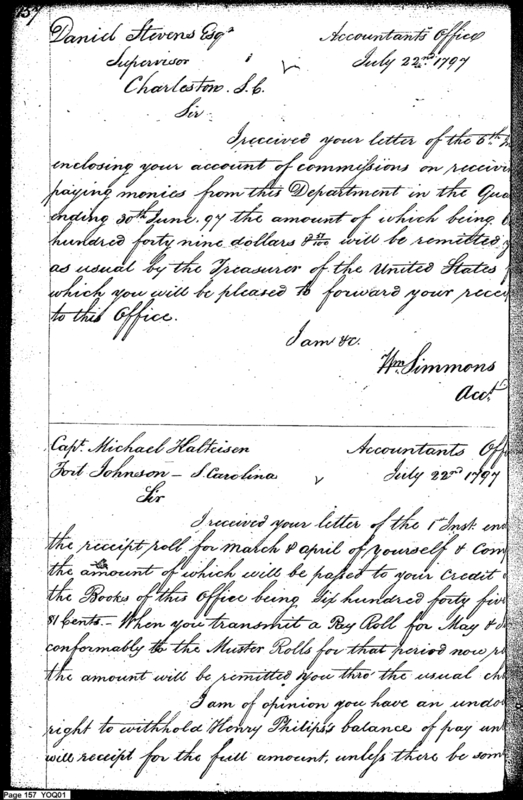 157
Daniel Stevens Esqr Accountants Office
Supervisor July 22nd 1797
Charleston. S.C.
Sir
I received your letter of the 6th
enclosing your account of commissions on
paying monies from this Department in the
ending 30th June. 97 the amount of which being
hundred forty nine dollars & /100 will be remitted
as usual by the Treasurer of the United States
which you will be pleased to forward your
to this Office.
I am &c.
Wm. Simmons
Acct
Capt. Michael Kalteisen Accountants
Fort Johnson - S. Carolina July 22nd 1797
Sir
I received your letter of the 1st Inst.
the receipt roll for March & April of yourself &
the amount of which will be passed to your credit
the Books of this Office being Six hundred forty
81 Cents. - When you transmit a Pay Roll for May &
conformably to the Muster Rolls for that period now
the amount will be remitted you thro' the usual
I am of opinion you have an
right to withhold Henry Philips's balance of pay
will receipt for the full amount, unless there be
Page 157 YOQ01